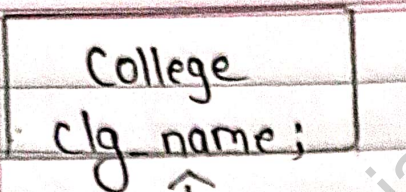 College
clg_name;